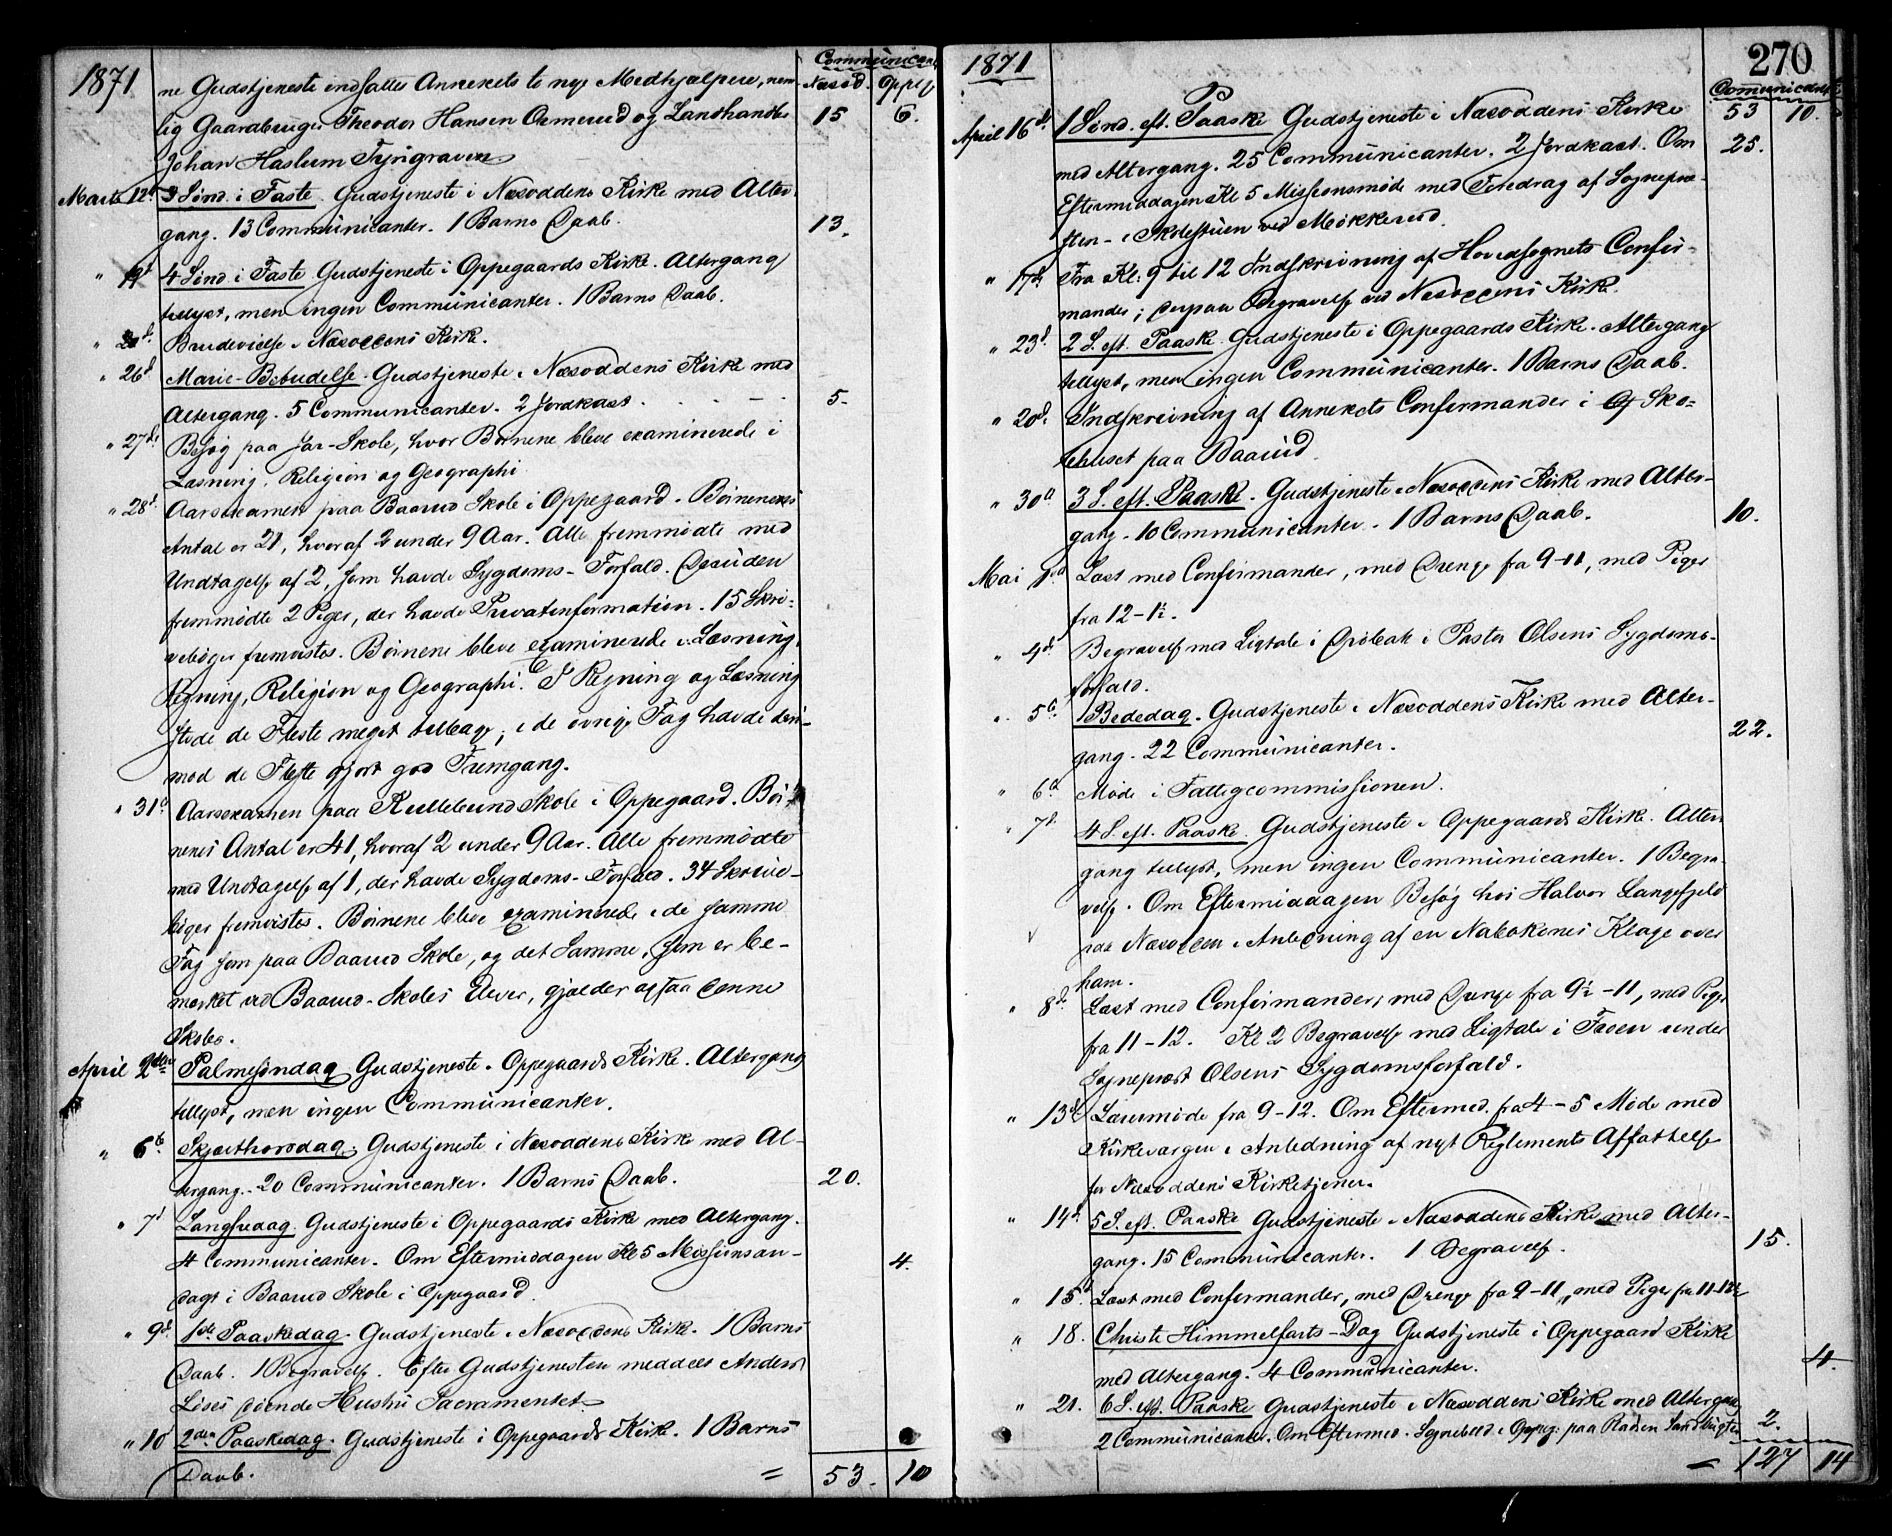 1871
Communicant
Næsod. Oppeg
ne Gudstjeneste indsattes Annekets to nye Medhjælpere, nem-
lig Gaardbruger Theodor Hansen Ormerud og Landhandler 15 6.
Johan Haslum Tyrigraven
Marts 12te 3 Sønd. i Faste. Gudstjeneste i Næsoddens Kirke med Alter-
gang. 13 Communicanter. 1 Barns Daab. 13.
" 19d 4 Sønd i Faste Gudstjeneste i Oppegaards Kirke. Altergang
tillyst, men ingen Communicanter. 1 Barns Daab.
" Brudevielse i Næsoddens Kirke.
" 26d Mariæ-Bebudelse. Gudstjeneste i Næsoddens Kirke med
Altergang. 5 Communicanter. 2 Jordkast. 5-
" 27de Besøg paa Jar-Skole, hvor Børnene bleve examinerede i
Læsning, Religion og Geographi
" 28d. Aarsexamen paa Baarud Skole i Oppegaard. Børnenes
Antal er 21, hvoraf 2 under 9 Aar. Alle fremmødte med
Undtagelse af 2, som havde Sygdoms-Forfald. Desuden
fremmødte 2 Piger, der havde Privatinformation. 15 Skri-
vebøger fremvistes. Børnene bleve examinerede i Læsning,
Regning, Religion og Geographi. I Regning og Læsning
stode de Fleste meget tilbage; i de øvrige Fag havde deri-
mod de Fleste gjort god Fremgang.
" 31d Aarsexamen paa Kullebund Skole i Oppegaard. Bør-
nenes Antal er 41, hvoraf 2 under 9 Aar. Alle fremmødte
med Undtagelse af 1, der havde Sygdoms-Forfald. 34 Skrive-
bøger fremvistes. Børnene bleve examinerede i de samme
Fag som paa Baarud Skole, og det Samme, som er be-
mærket ved Baarud-Skoles Elever, gjælder ogsaa denne
Skoles.
April 2den Palmesøndag Gudstjeneste i Oppegaards Kirke. Altergang
tillyst, men ingen Communicanter.
" 6te Skjærthorsdag. Gudstjeneste i Næsoddens Kirke med Al-
tergang. 20 Communicanter. 1 Barns Daab. 20.
" 7d Langfredag. Gudstjeneste i Oppegaards Kirke med Altergang.
4 Communicanter. Om Eftermiddagen Kl 5 Missionsan- 4.
dagt i Baarud Skole i Oppegaard.
" 9d. 1ste Paaskedag. Gudstjeneste i Næsoddens Kirke. 1 Barns
Daab. 1 Begravelse. Efter Gudstjenesten meddeelt Anders
Lises døende Hustru Sacramentet.
" 10 2den Paaskedag. Gudstjeneste i Oppegaards Kirke. 1 Barns
Daab. = 53. 10
1871
270
Communicant
April 16d 1 Sønd. eft. Paaske Gudstjeneste i Næsoddens Kirke 53 10.
med Altergang. 25 Communicanter. 2 Jordkast. Om 25.
Eftermiddagen Kl 5 Missionsmøde med Foredrag af Sognepræ-
sten i Skolestuen ved Mokkerud.
" 17d. Fra Kl. 9 til 12 Indskrivning af Hovedsognets Confir-
mander; derpaa Begravelse ved Næsoddens Kirke.
" 23d. 2 S. eft. Paaske. Gudstjeneste i Oppegaards Kirke. Altergang
tillyst, men ingen Communicanter. 1 Barns Daab.
" 20d. Indskrivning af Annekets Confirmander i Sko-
lehuset paa Baarud.
" 30d 3 S. eft. Paaske. Gudstjeneste i Næsoddens Kirke med Alter-
gang. 10 Communicanter. 1 Barns Daab. 10.
Mai Læst med Confirmander, med Drenge fra 9-11, med Piger
fra 12-1½.
" 4d. Begravelse med Ligtale i Drøbak i Pastor Olsens Sygdoms-
forfald.
" 5te Bededag. Gudstjeneste i Næsoddens Kirke med Alter-
gang. 22 Communicanter. 22.
" 6d Møde i Fattigcommissionen.
" 7d. 4 S. eft. Paaske. Gudstjeneste i Oppegaards Kirke. Alter-
gang tillyst, men ingen Communicanter. 1 Begra-
velse. Om Eftermiddagen Besøg hos Halvor Langfjeld
paa Næsodden i Anledning af en Nabokones Klage over
ham.
" 8d. Læst med Confirmander, med Drenge fra 9½-11, med Piger
fra 11-12. Kl 2 Begravelse med Ligtale i under
Sognepræst Olsens Sygdomsforfald.
" 13d Lærermøde fra 9-12. Om Eftermed. fra 4-5 Møde med
Kirkeværgen i Anledning af nyt Reglements Affattelse
for Næsoddens Kirketjener.
" 14d. 5 S. eft. Paaske Gudstjeneste i Næsoddens Kirke med Alter-
gang. 15 Communicanter. 1 Begravelse. 15.
" 15d Læst med Confirmander, med Drenge fra 9-11, med Piger fra 11-12½
" 18. Christi Himmelfarts-Dag Gudstjeneste i Oppegaard Kirke
med Altergang. 4 Communicanter. 4.
" 21. 6 S. eft. Paaske Gudstjeneste i Næsoddens Kirke med Altergang
2 Communicanter. Om Eftermed. i Oppeg. paa 2.
127 14